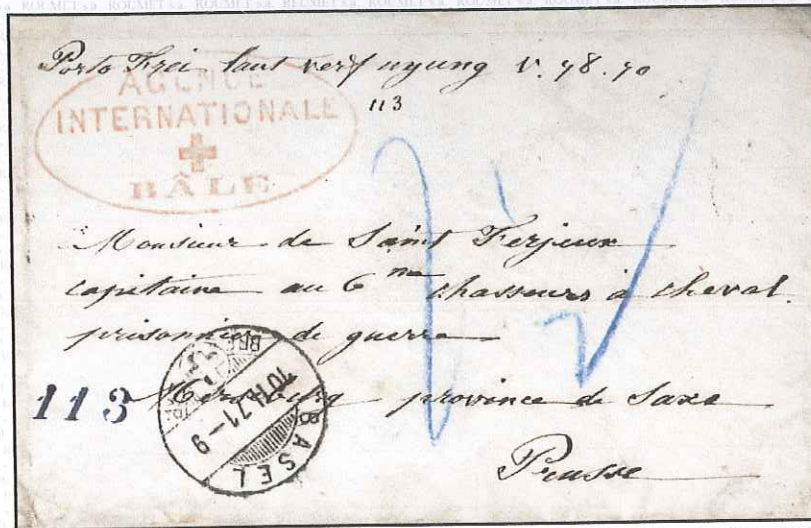 ROUMET s.a. ROUMET s.a. ROUMET s.a. ROUMET s.a. ROUMET s.a. ROUMET s.a. ROUMET s.a.
Porto Frei laut verfugung v. 48.70
AGENCE
INTERNATIONALE
BÂLE
113
Monsieur de Saint Ferjeux
capitaine au 6me chasseurs à cheval
prisonnier de guerre
113 Mersburg province de Saxe
Prusse
BASEL
10 II 71-9